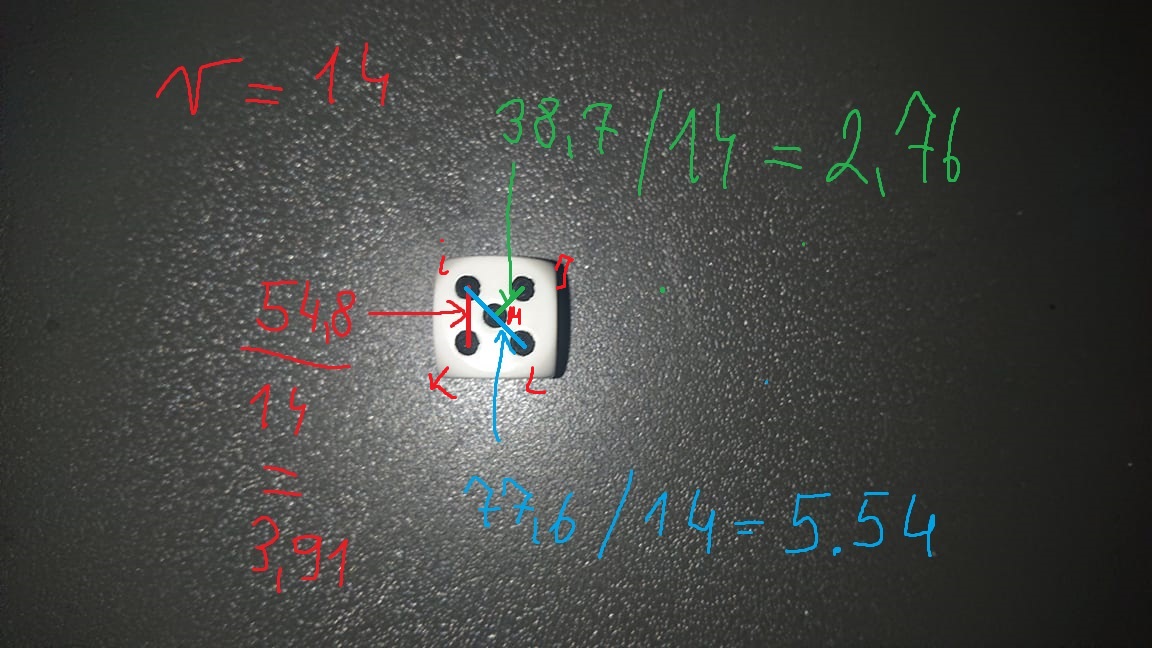 r = 14
38,7 / 14 = 2,76
i
J
54,8
M
14
K
L
=
3,91
77,6 / 14 = 5.54